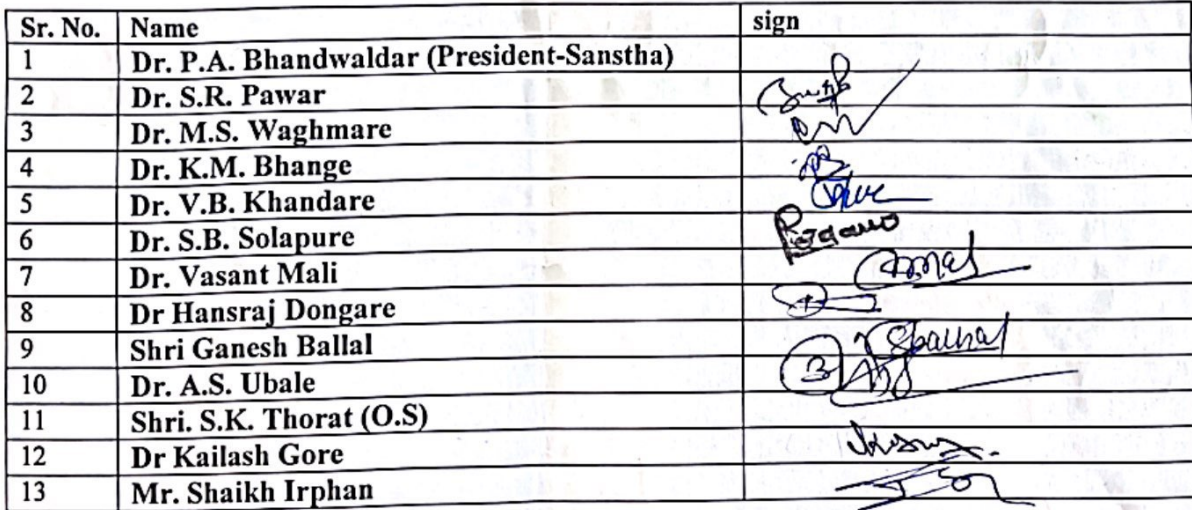 Sr. No. Name sign
1 Dr. P.A. Bhandwaldar (President-Sanstha)
2 Dr. S.R. Pawar
3 Dr. M.S. Waghmare
4 Dr. K.M. Bhange
5 Dr. V.B. Khandare
6 Dr. S.B. Solapure
7 Dr. Vasant Mali
8 Dr Hansraj Dongare
9 Shri Ganesh Ballal
10 Dr. A.S. Ubale
11 Shri. S.K. Thorat (O.S)
12 Dr Kailash Gore
13 Mr. Shaikh Irphan